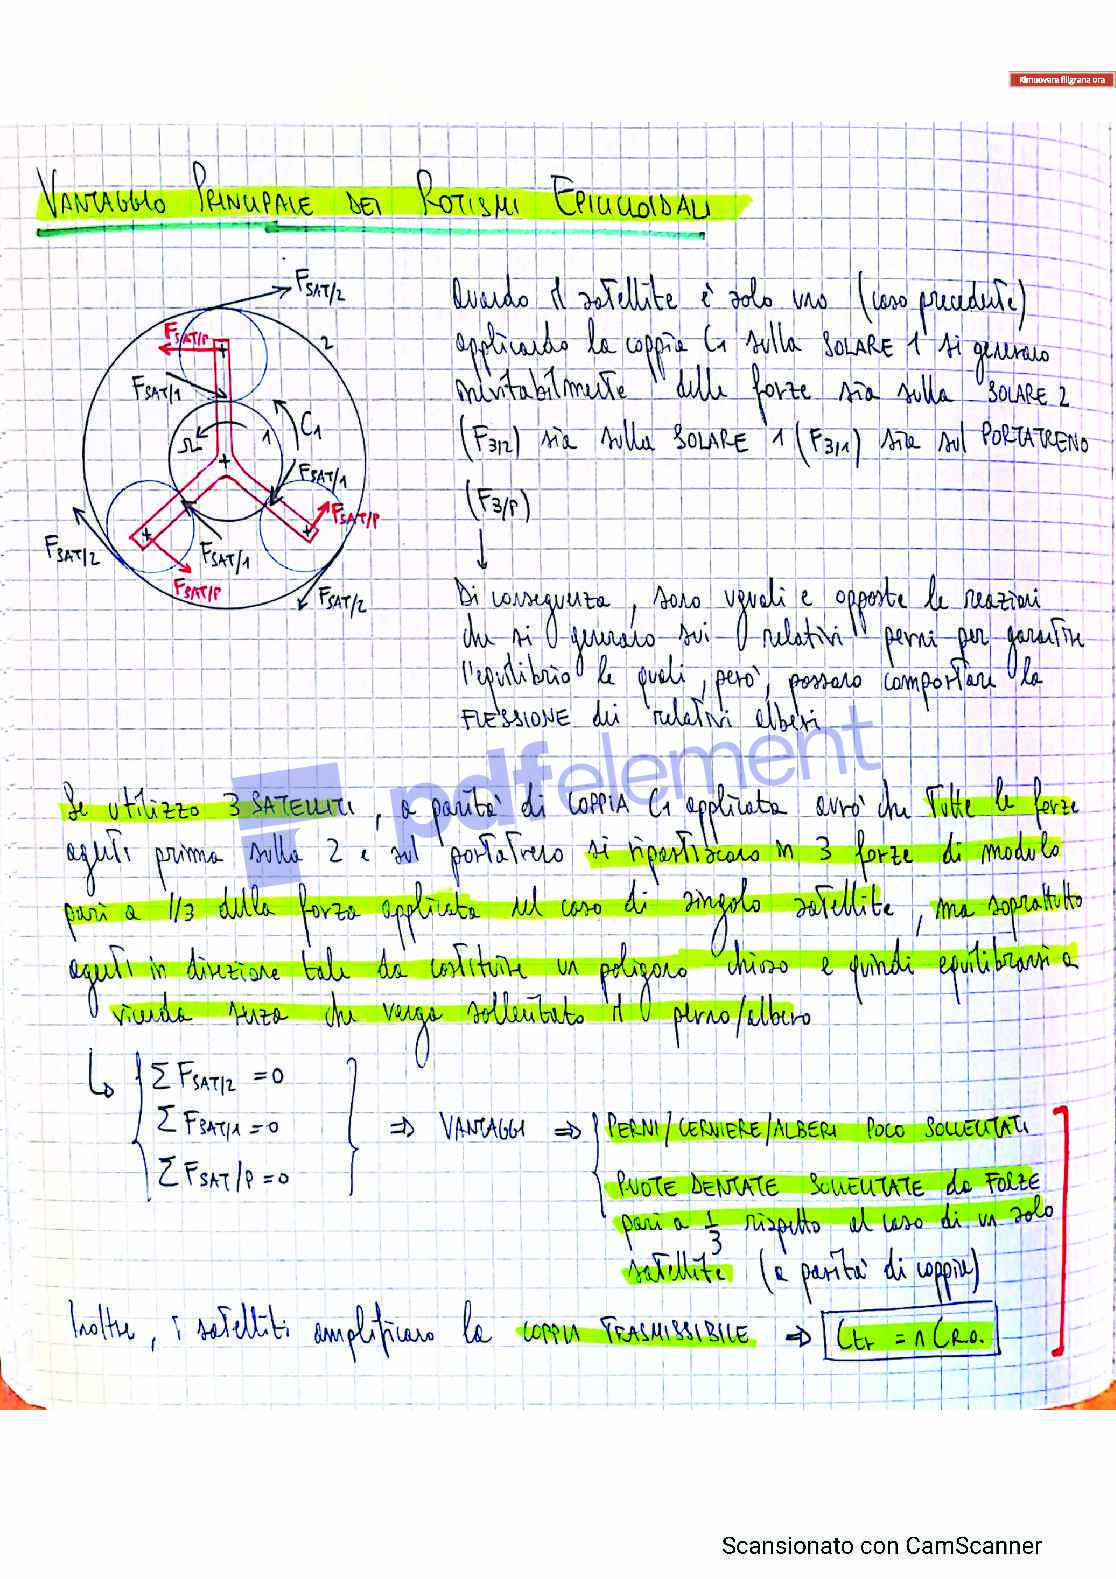 Rimuovera filigrana ora
VANTAGGIO PRINCIPALE DEI ROTISMI EPICICLOIDALI
FSAT/2
FSAT/P
2
FSAT/1
C1
Ω
1
FSAT/1
FSAT/P
FSAT/2
FSAT/1
FSAT/P
FSAT/2
Quando il satellite è solo uno (caso precedente)
applicando la coppia C1 sulla SOLARE 1 si generano
inevitabilmente delle forze sia sulla SOLARE 2
(F3/2) sia sulla SOLARE 1 (F3/1) sia sul PORTATRENO
(F3/P)
↓
Di conseguenza, sono uguali e opposte le reazioni
che si generano sui relativi perni per garantire
l'equilibrio le quali, però, possono comportare la
FLESSIONE dei relativi alberi
pdfelement
Se utilizzo 3 SATELLITI, a parità di COPPIA C1 applicata avrò che tutte le forze
agenti prima sulla 2 e sul portatreno si ripartiscono in 3 forze di modulo
pari a 1/3 della forza applicata nel caso di singolo satellite, ma soprattutto
agenti in direzione tale da costituire un poligono chiuso e quindi equilibrarsi a
vicenda senza che venga sollecitato il perno/albero
↳ Σ FSAT/2 = 0
Σ FSAT/1 = 0
Σ FSAT/P = 0
⇒ VANTAGGI ⇒ PERNI/CERNIERE/ALBERI POCO SOLLECITATI
RUOTE DENTATE SOLLECITATE da FORZE
pari a 1/3 rispetto al caso di un solo
satellite (a parità di coppia)
Inoltre, i satelliti amplificano la COPPIA TRASMISSIBILE ⇒ Ctr = n CR.O.
Scansionato con CamScanner